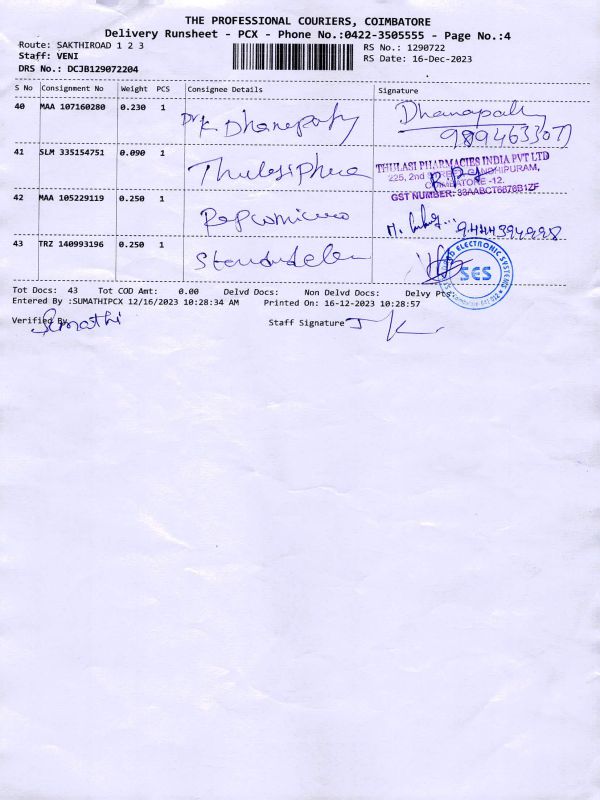 THE PROFESSIONAL COURIERS, COIMBATORE
Delivery Runsheet - PCX - Phone No.:0422-3505555 - Page No.:4
Route: SAKTHIROAD 1 2 3
RS No.: 1290722
Staff: VENI
RS Date: 16-Dec-2023
DRS No.: DCJB129072204
S No Consignment No Weight PCS Consignee Details Signature
40 MAA 107160280 0.230 1 Dr K. Dhanapathy Dhanapathy
9894633077
41 SLM 335154751 0.090 1 Thulasi Pharma THULASI PHARMACIES INDIA PVT LTD
225, 2nd STREET, GANDHIPURAM,
COIMBATORE -12.
GST NUMBER: 33AABCT6676B1ZF
42 MAA 105229119 0.250 1 9444394998
43 TRZ 140993196 0.250 1 SES
Tot Docs: 43 Tot COD Amt: 0.00 Delvd Docs: Non Delvd Docs: Delvy Pts:
Entered By :SUMATHIPCX 12/16/2023 10:28:34 AM Printed On: 16-12-2023 10:28:57
Verified By Sumathi Staff Signature